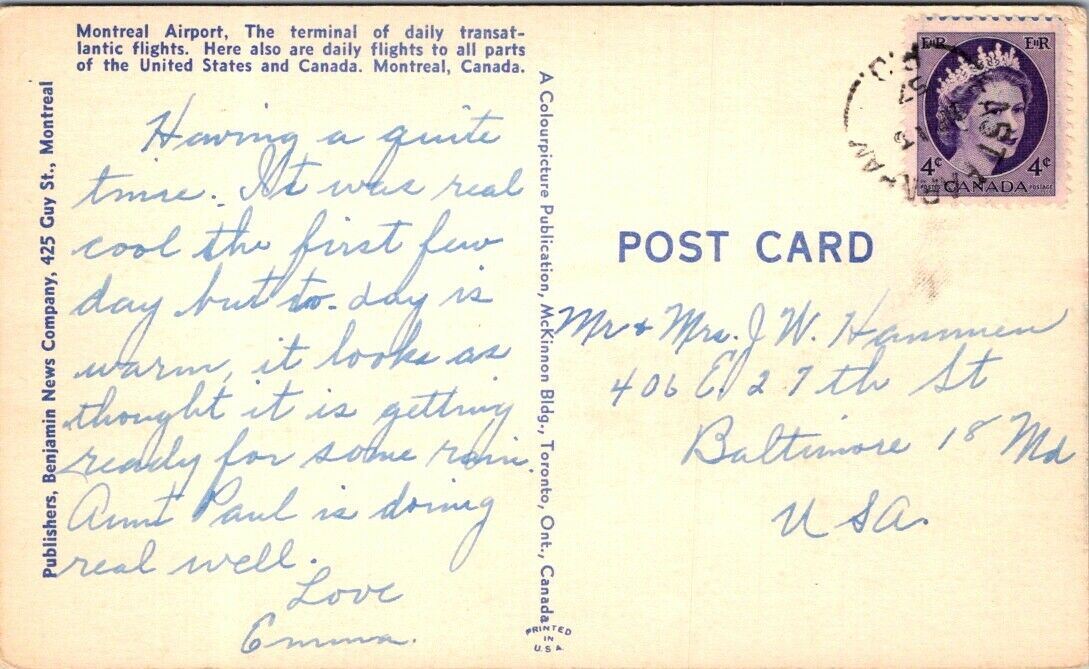 Montreal Airport, The terminal of daily transat-
lantic flights. Here also are daily flights to all parts
of the United States and Canada. Montreal, Canada.
Having a quite
time. It was real
cool the first few
day but to-day is
warm, it looks as
thought it is getting
ready for some rain.
Aunt Paul is doing
real well.
Love
Emma.
Publishers, Benjamin News Company, 425 Guy St., Montreal
A Colourpicture Publication, McKinnon Bldg., Toronto, Ont., Canada
PRINTED
IN
U.S.A.
EIIR EIIR
4¢ 4¢
POSTES CANADA POSTAGE
57
POST CARD
Mr + Mrs. J. W. Hammen
406 E. 27th St
Baltimore 18 Md
USA.